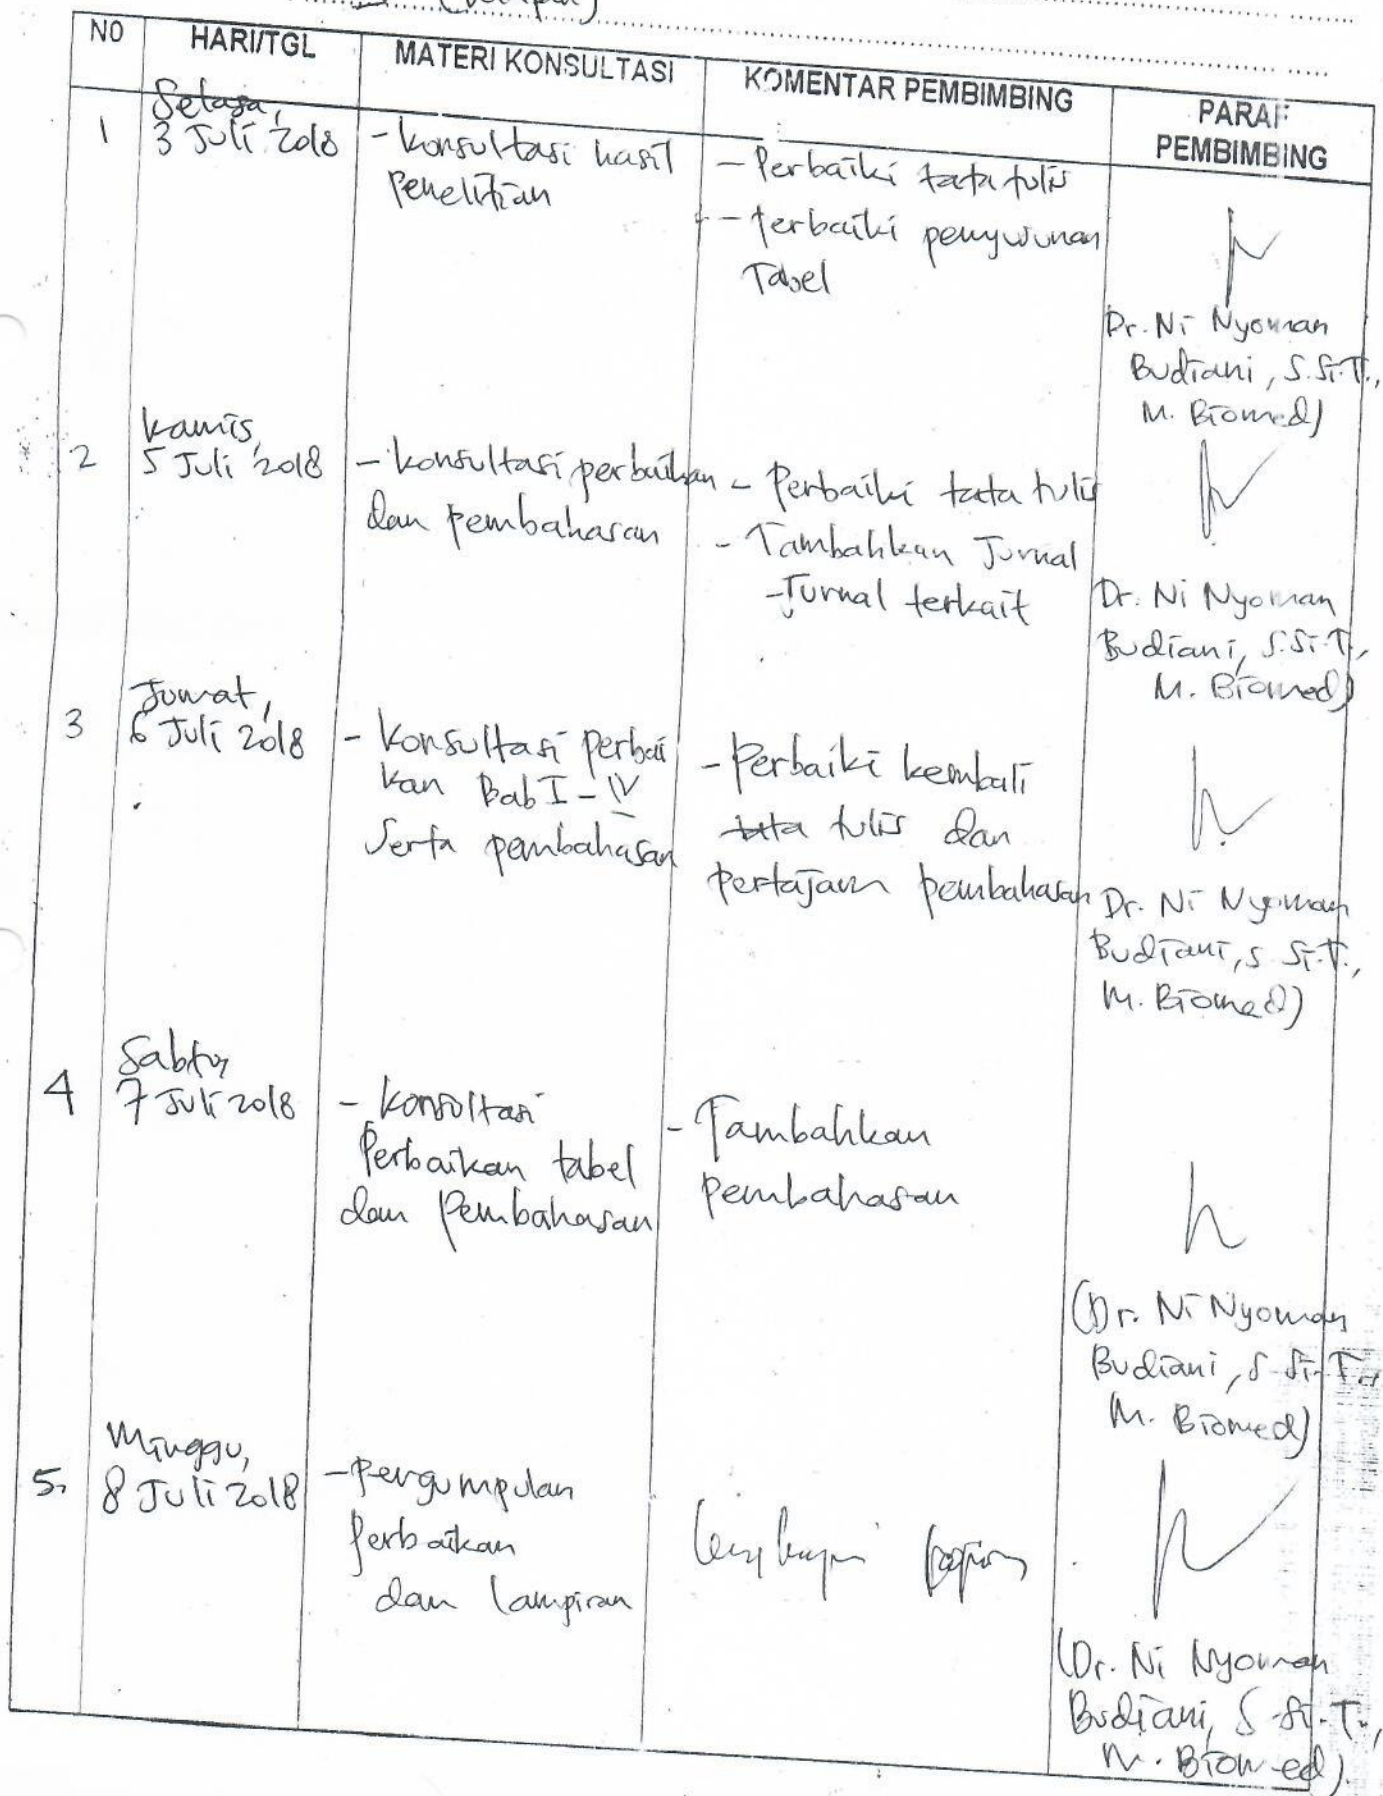 NO
HARI/TGL
MATERI KONSULTASI
KOMENTAR PEMBIMBING
PARAF
PEMBIMBING
1
Selasa,
3 Juli 2018
- Konsultasi hasil
Penelitian
- Perbaiki tata tulis
- Perbaiki penyusunan
Tabel
Dr. Ni Nyoman
Budiani, S.Si.T.,
M. Biomed)
2
Kamis,
5 Juli 2018
- Konsultasi perbaikan
dan pembahasan
- Perbaiki tata tulis
- Tambahkan Jurnal
-Jurnal terkait
Dr. Ni Nyoman
Budiani, S.Si.T.,
M. Biomed)
3
Jumat,
6 Juli 2018
- Konsultasi Perbai
kan Bab I - IV
Serta pembahasan
- Perbaiki kembali
tata tulis dan
Pertajam pembahasan
Dr. Ni Nyoman
Budiani, S.Si.T.,
M. Biomed)
4
Sabtu,
7 Juli 2018
- Konsultasi
Perbaikan tabel
dan Pembahasan
- Tambahkan
Pembahasan
(Dr. Ni Nyoman
Budiani, S.Si.T.,
M. Biomed)
5.
Minggu,
8 Juli 2018
- Pengumpulan
Perbaikan
dan Lampiran
(Dr. Ni Nyoman
Budiani, S.Si.T.,
M. Biomed)